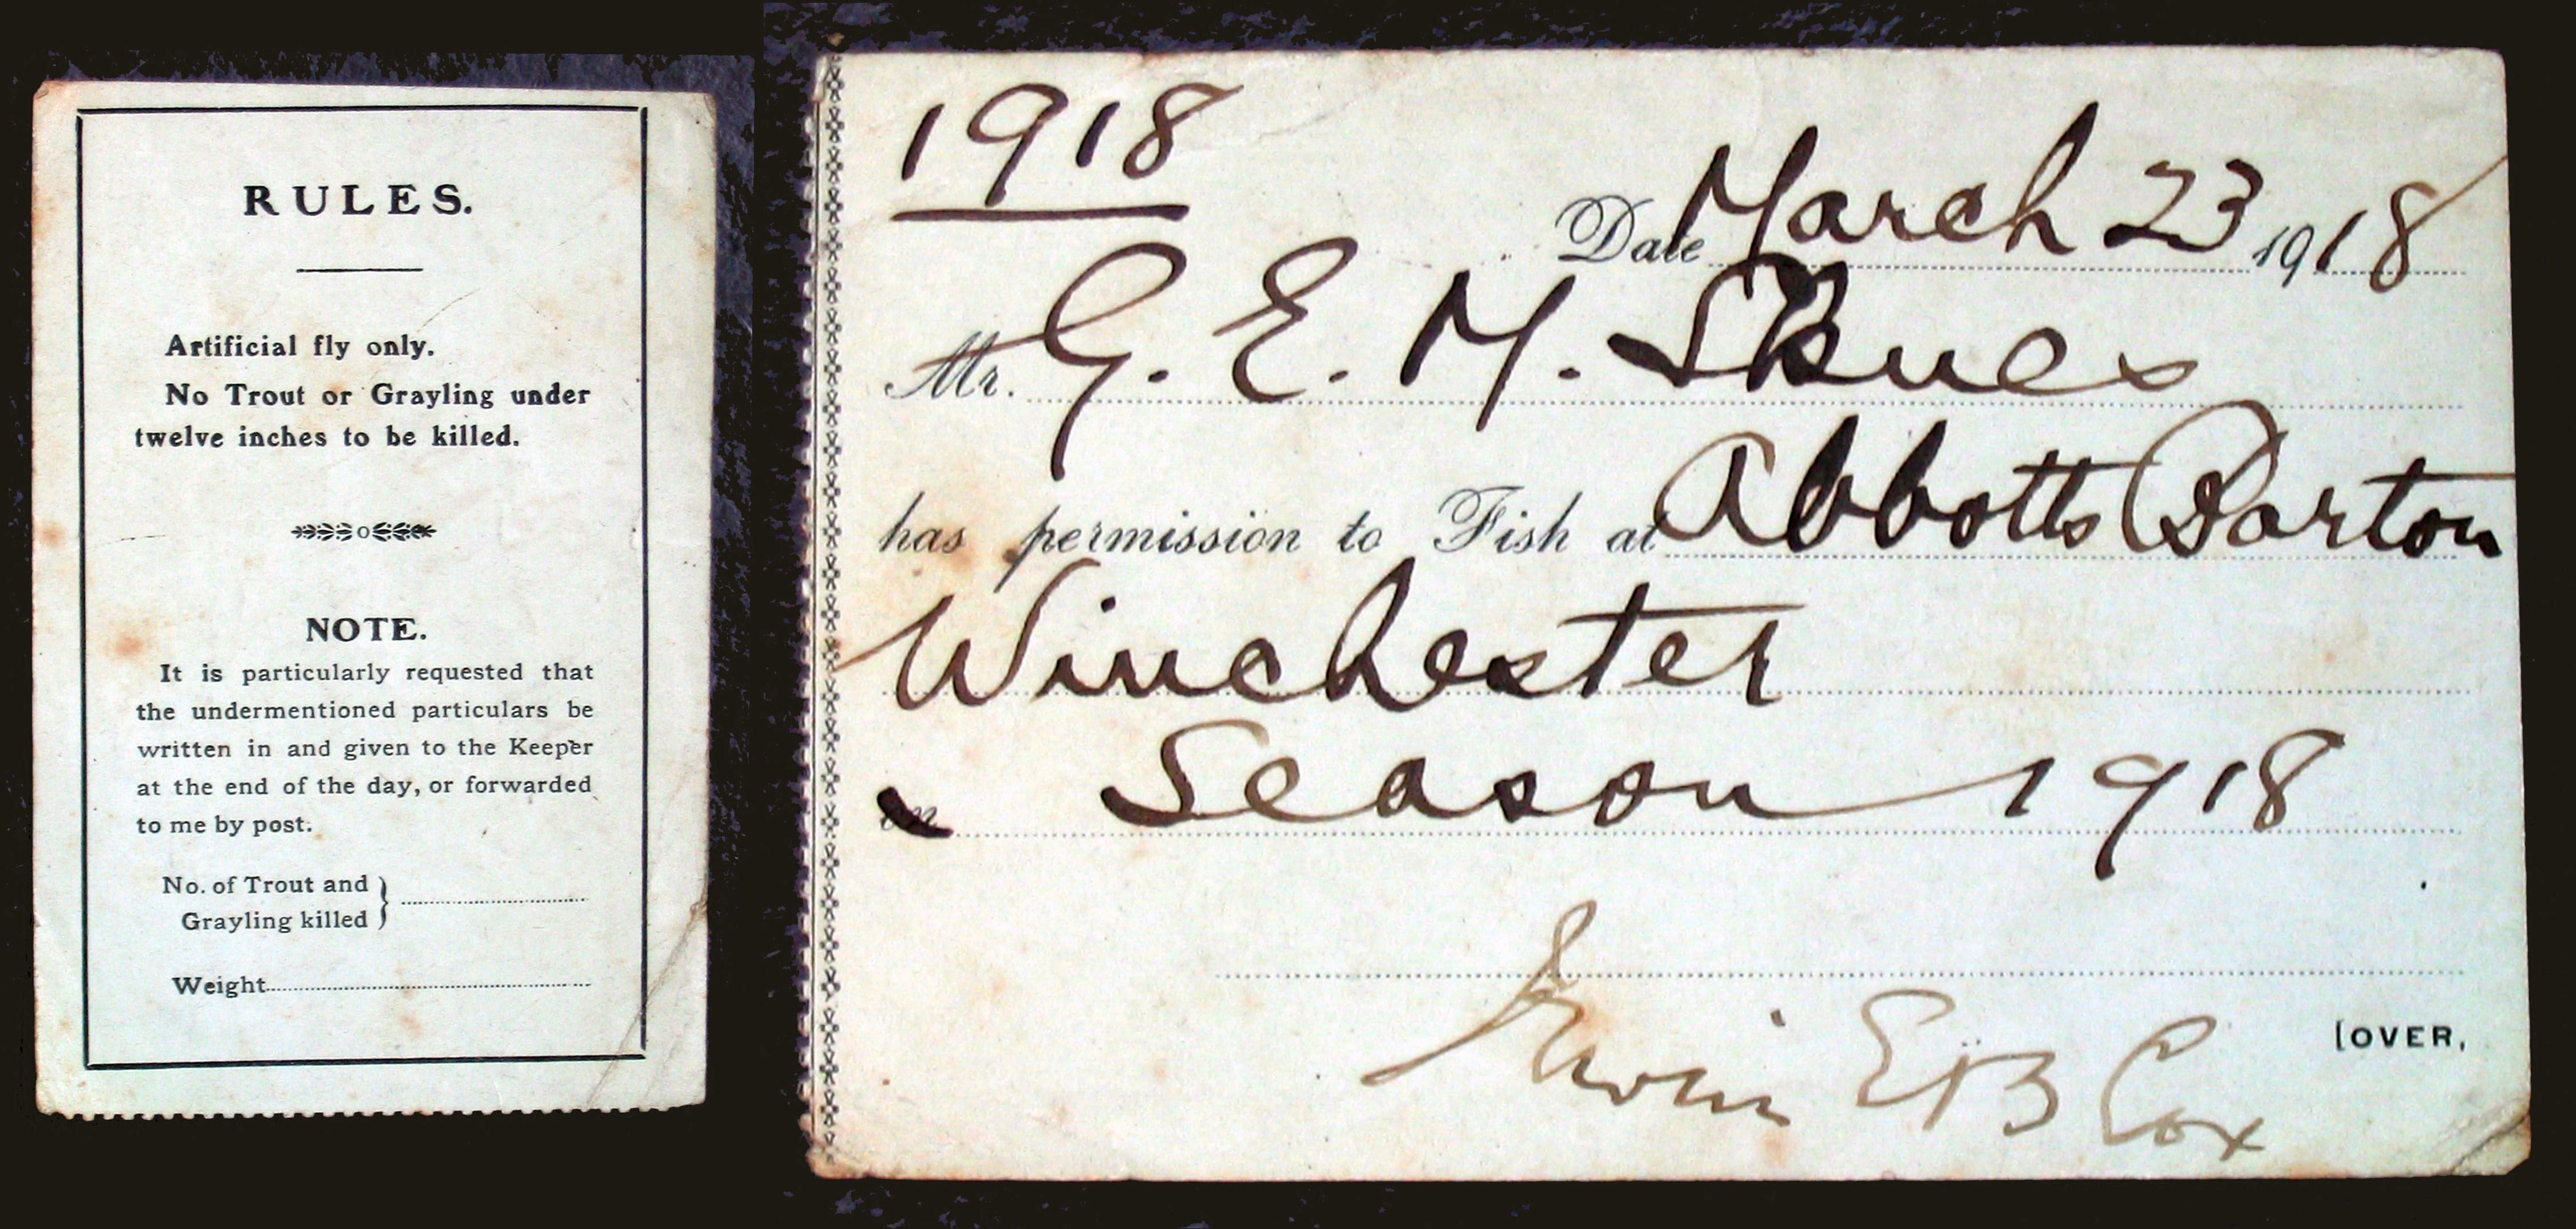 RULES.
Artificial fly only.
No Trout or Grayling under
twelve inches to be killed.
NOTE.
It is particularly requested that
the undermentioned particulars be
written in and given to the Keeper
at the end of the day, or forwarded
to me by post.
No. of Trout and
Grayling killed
Weight
1918
Date March 23 1918
Mr. G. E. M. Skues
has permission to Fish at Abbotts Barton
Winchester
on Season 1918
Cox
[OVER,